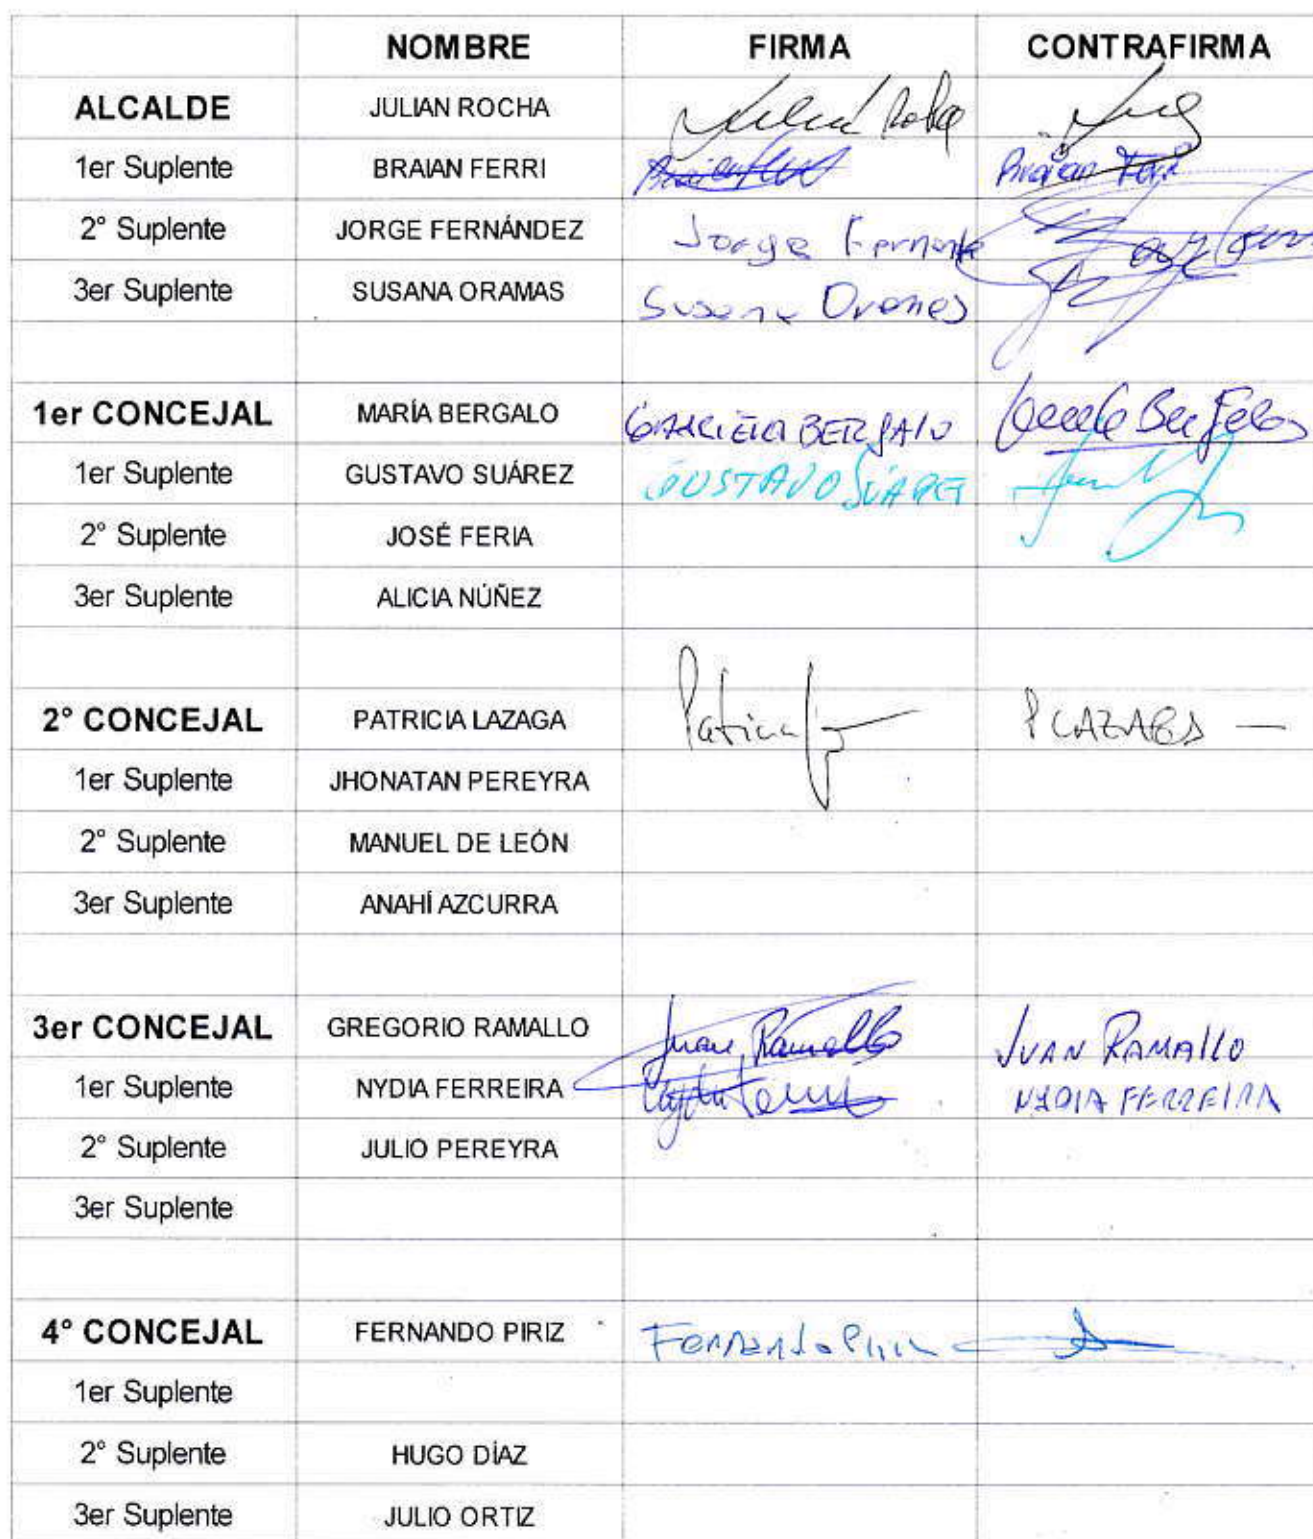 NOMBRE FIRMA CONTRAFIRMA
ALCALDE JULIAN ROCHA Julian Rocha
1er Suplente BRAIAN FERRI Braian Ferri Braian Ferri
2° Suplente JORGE FERNÁNDEZ Jorge Fernande
3er Suplente SUSANA ORAMAS Susana Orames
1er CONCEJAL MARÍA BERGALO GABRIELA BERGALO
1er Suplente GUSTAVO SUÁREZ GUSTAVO SUAREZ
2° Suplente JOSÉ FERIA
3er Suplente ALICIA NÚÑEZ
2° CONCEJAL PATRICIA LAZAGA Patricia P LAZAGA —
1er Suplente JHONATAN PEREYRA
2° Suplente MANUEL DE LEÓN
3er Suplente ANAHÍ AZCURRA
3er CONCEJAL GREGORIO RAMALLO Juan Ramallo JUAN RAMALLO
1er Suplente NYDIA FERREIRA NYDIA FERREIRA
2° Suplente JULIO PEREYRA
3er Suplente
4° CONCEJAL FERNANDO PIRIZ Fernando Piriz
1er Suplente
2° Suplente HUGO DÍAZ
3er Suplente JULIO ORTIZ